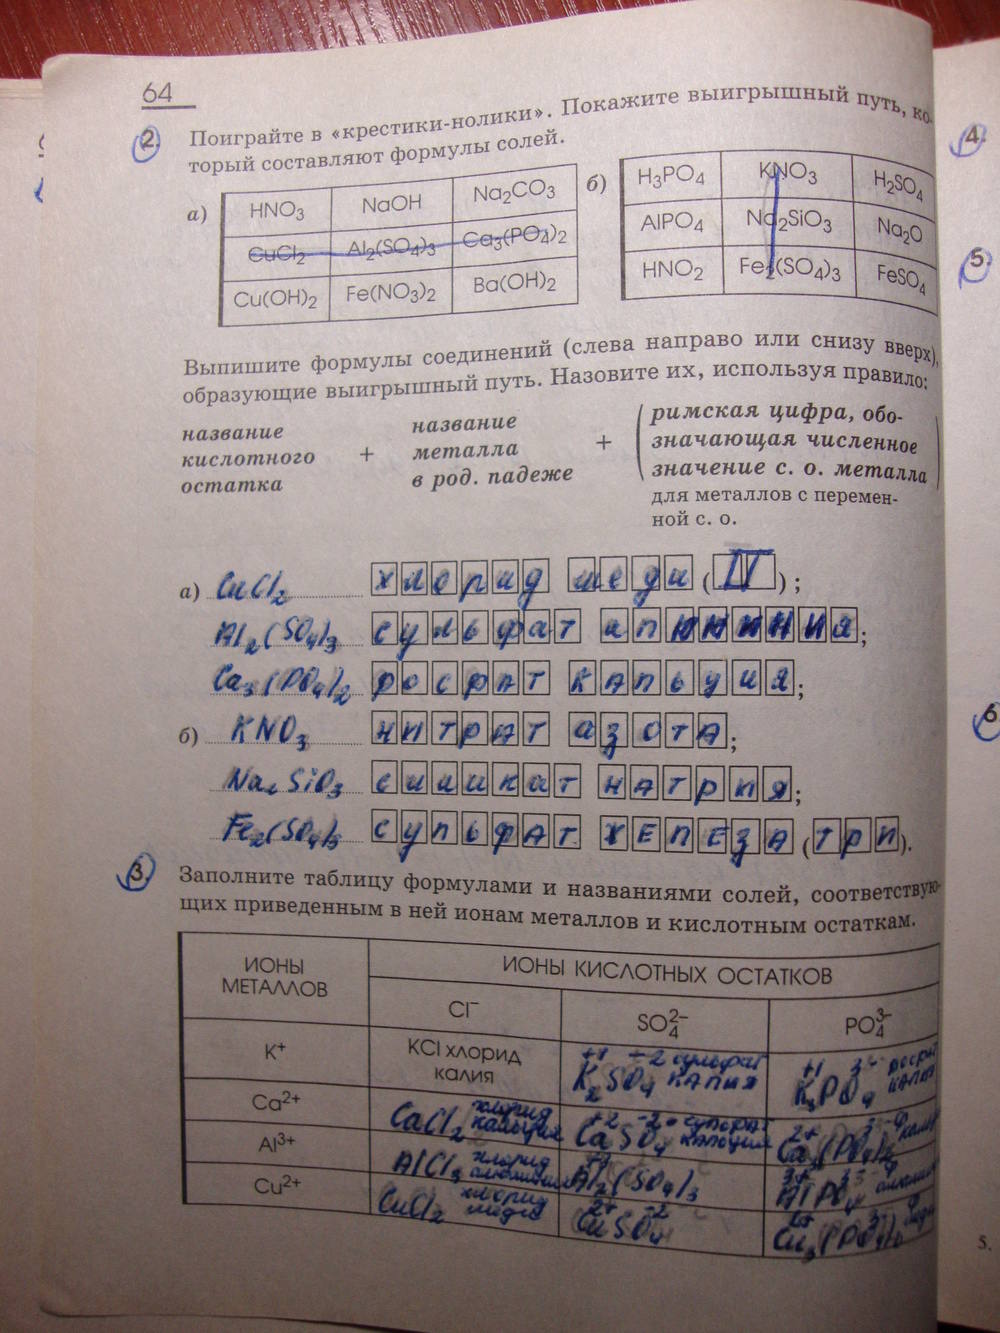 64
2. Поиграйте в «крестики-нолики». Покажите выигрышный путь, ко-
торый составляют формулы солей.
а)
HNO3 NaOH Na2CO3
CuCl2 Al2(SO4)3 Ca3(PO4)2
Cu(OH)2 Fe(NO3)2 Ba(OH)2
б)
H3PO4 KNO3 H2SO4
AlPO4 Na2SiO3 Na2O
HNO2 Fe2(SO4)3 FeSO4
Выпишите формулы соединений (слева направо или снизу вверх),
образующие выигрышный путь. Назовите их, используя правило:
название
кислотного
остатка
+
название
металла
в род. падеже
+
(римская цифра, обо-
значающая численное
значение с. о. металла)
для металлов с перемен-
ной с. о.
а) CuCl2 хлорид меди (II);
Al2(SO4)3 сульфат алюминия;
Ca3(PO4)2 фосфат кальция;
б) KNO3 нитрат азота;
Na2SiO3 силикат натрия;
Fe2(SO4)3 сульфат железа (три).
3. Заполните таблицу формулами и названиями солей, соответствую-
щих приведенным в ней ионам металлов и кислотным остаткам.
ИОНЫ МЕТАЛЛОВ
ИОНЫ КИСЛОТНЫХ ОСТАТКОВ
Cl− SO4 2− PO4 3−
K+ KCl хлорид калия K2SO4 +1 −2 сульфат калия K3PO4 +1 3− фосфат калия
Ca2+ CaCl2 хлорид кальция CaSO4 +2 −2 сульфат кальция Ca3(PO4)2 2+ 3−
Al3+ AlCl3 хлорид алюминия Al2(SO4)3 AlPO4 3+ 3−
Cu2+ CuCl2 хлорид меди CuSO4 2+ −2 Cu3(PO4)2 2+ 3−
4.
5.
6.
5.